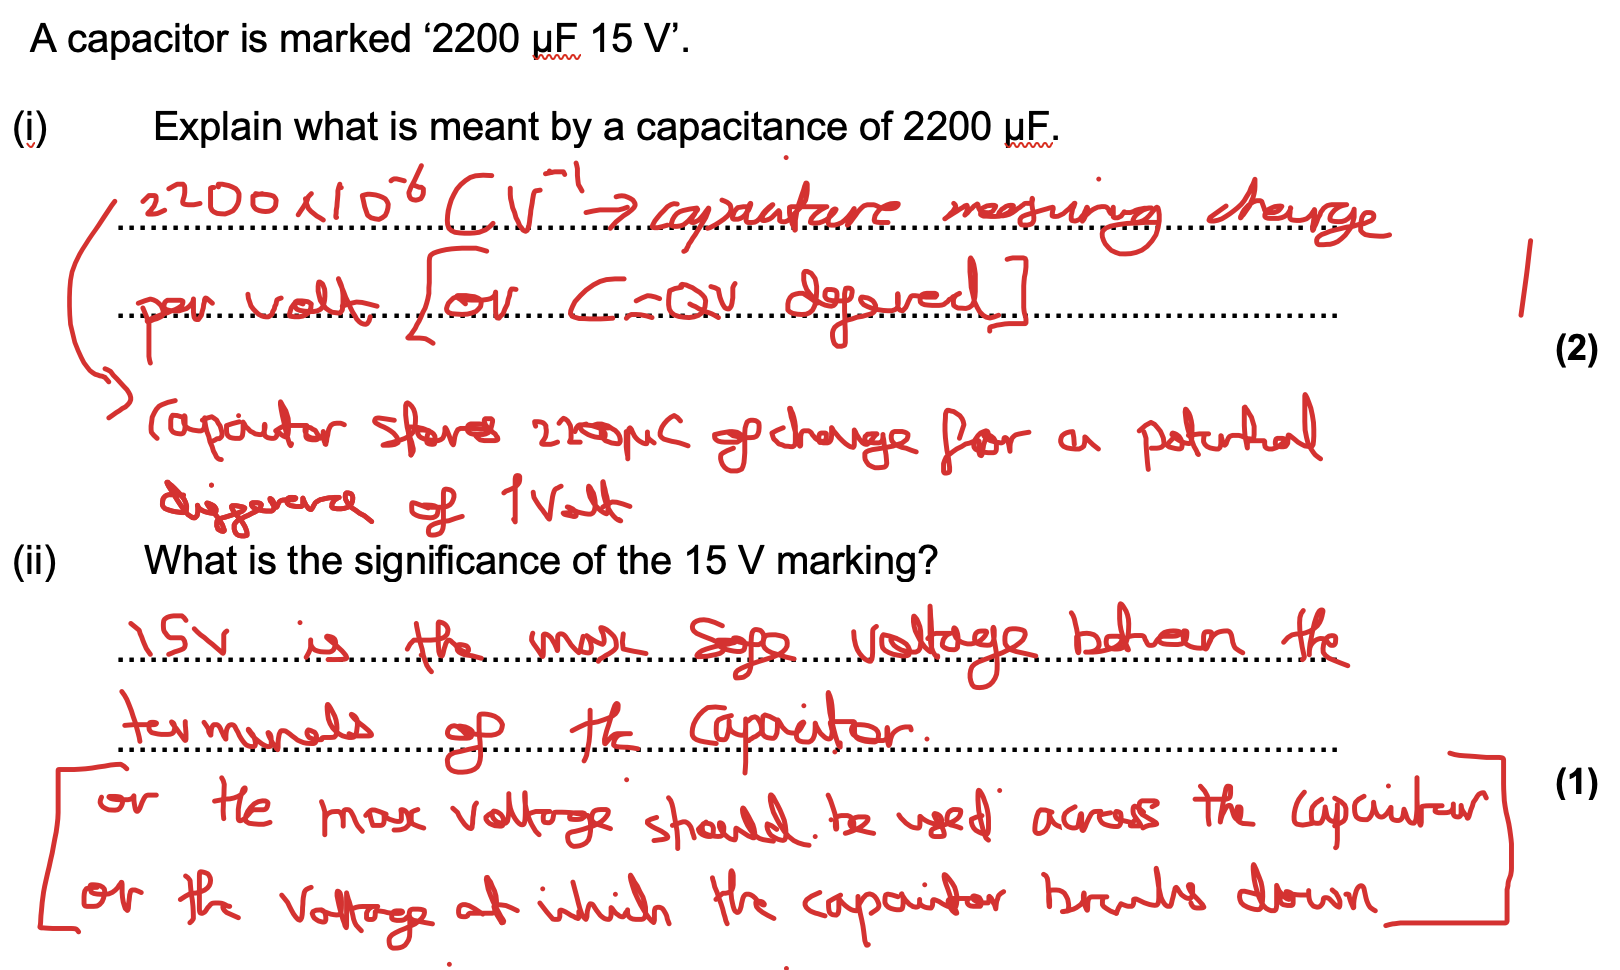 A capacitor is marked ‘2200 µF 15 V’.
(i) Explain what is meant by a capacitance of 2200 µF.
2200 x 10⁻⁶ C V⁻¹ → capacitance measuring charge
per volt [or C = QV defined]
(2)
Capacitor stores 2200µC of charge for a potential
difference of 1 Volt
(ii) What is the significance of the 15 V marking?
15V is the max safe voltage between the
terminals of the capacitor.
(1)
or the max voltage should be used across the capacitor
or the voltage at which the capacitor breaks down